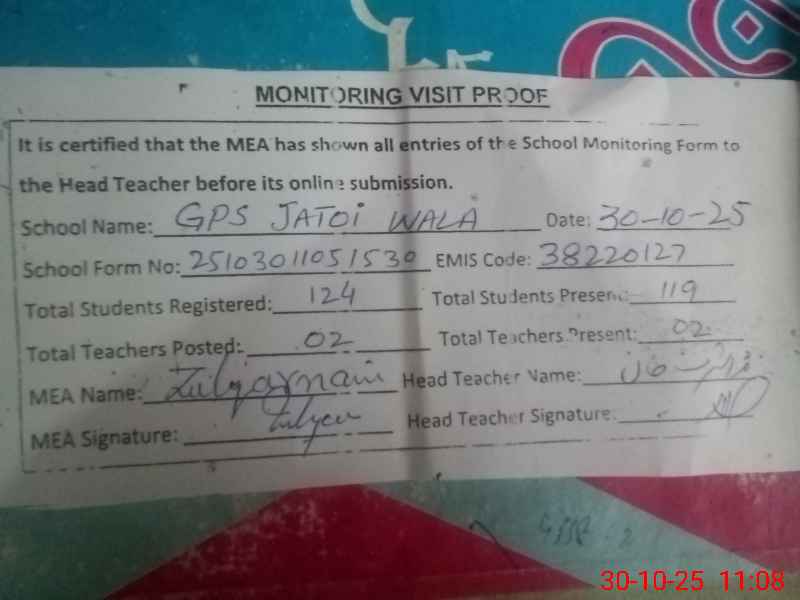 MONITORING VISIT PROOF
It is certified that the MEA has shown all entries of the School Monitoring Form to
the Head Teacher before its online submission.
School Name: GPS JATOI WALA Date: 30-10-25
School Form No: 25103011051530 EMIS Code: 38220127
Total Students Registered: 124 Total Students Present: 119
Total Teachers Posted: 02 Total Teachers Present: 02
MEA Name: Zulqarnain Head Teacher Name:
MEA Signature: Head Teacher Signature:
30-10-25 11:08